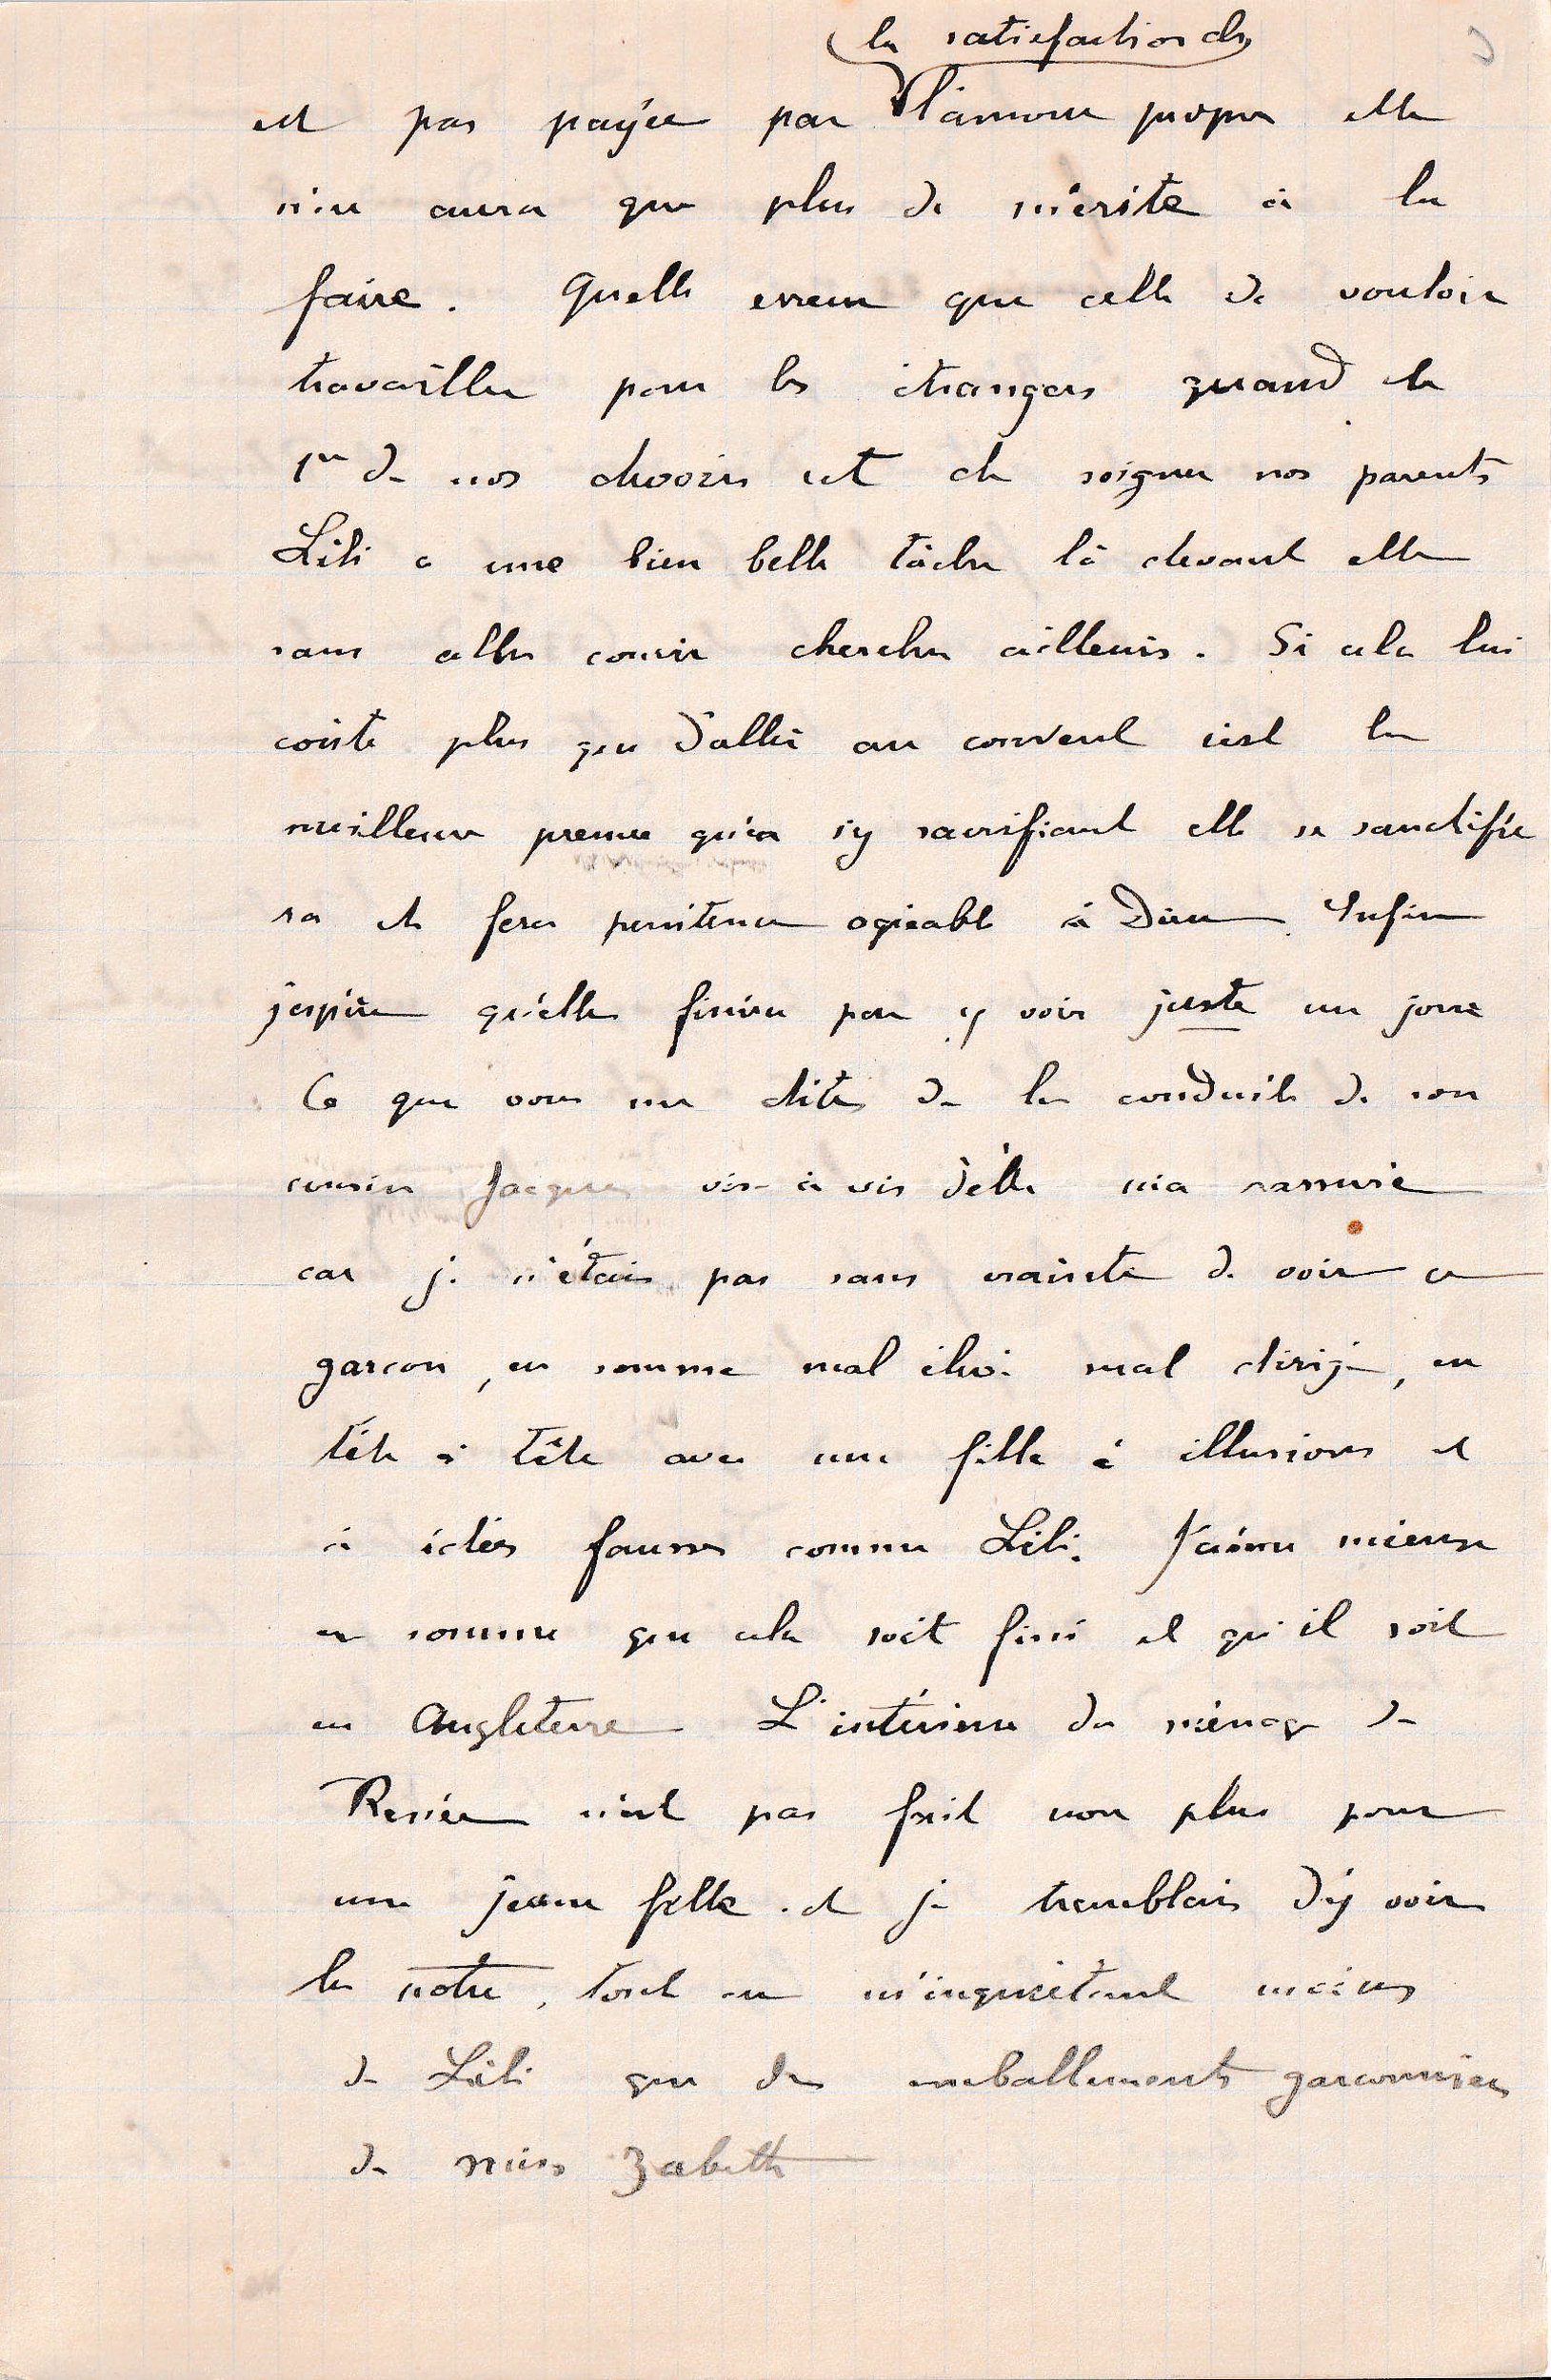 la satisfaction de
est pas payée par l'amour propre elle
n'en aura que plus de mérite à la
faire. Quelle erreur que celle de vouloir
travailler pour les étrangers quand le
1er de nos devoirs est de soigner nos parents
Lili a une bien belle tâche là devant elle
sans aller courir chercher ailleurs. Si cela lui
coûte plus que d'aller au couvent c'est la
meilleure preuve qu'en s'y sacrifiant elle se sanctifie
ra et fera penitence agréable à Dieu. Enfin
j'espère qu'elle finira par y voir juste un jour
Ce que vous me dites de la conduite de son
cousin Jacques vis-à vis d'elle m'a rassurée
car je n'étais pas sans crainte de voir ce
garcon, en somme mal élevé mal dirigé, en
tête à tête avec une fille à illusions et
à idées fausses comme Lili. J'aime mieux
en somme que cela soit fini et qu'il soit
en Angleterre L'intérieur du ménage de
Renée n'est pas fait non plus pour
une jeune fille. et je tremblais d'y voir
la notre, tout en m'inquiétant moins
de Lili que des emballements garconniers
de miss Zabeth